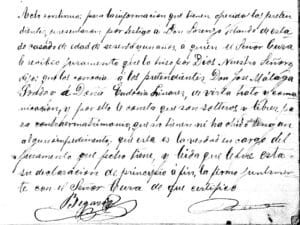 Acto continuo: para la informacion que tienen ofrecida los preten
dientes, presentaron por testigo a Don Lorenzo de esta
do casado de edad de sesenta años, a quien el Señor Cura
le recibio juramento que lo hizo por Dios Nuestro Señor
dijo: que los conoce a los pretendientes Don José Malaga
y a Doña de vista trato y comu
nicacion, y por ello le consta que son solteros y libres, pa
ra contraer matrimonio, que no tienen ni ha habido
algun impedimento, que esta es la verdad en cargo del
juramento que fecho tiene, y leida que le fue esta
su declaracion de principio a fin, la firmo juntamen
te con el Señor Cura de que certifico